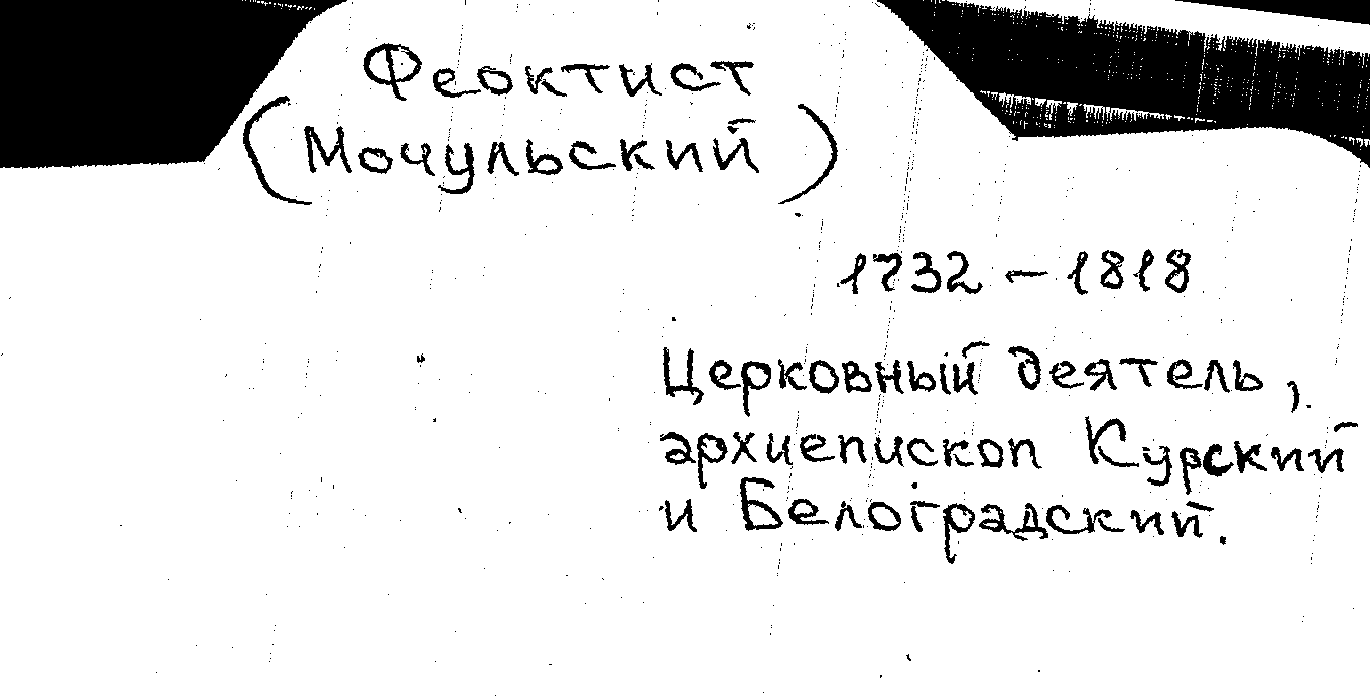 Феоктист
(Мочульский)
1732 – 1818
Церковный деятель,
архиепископ Курский
и Белоградский.